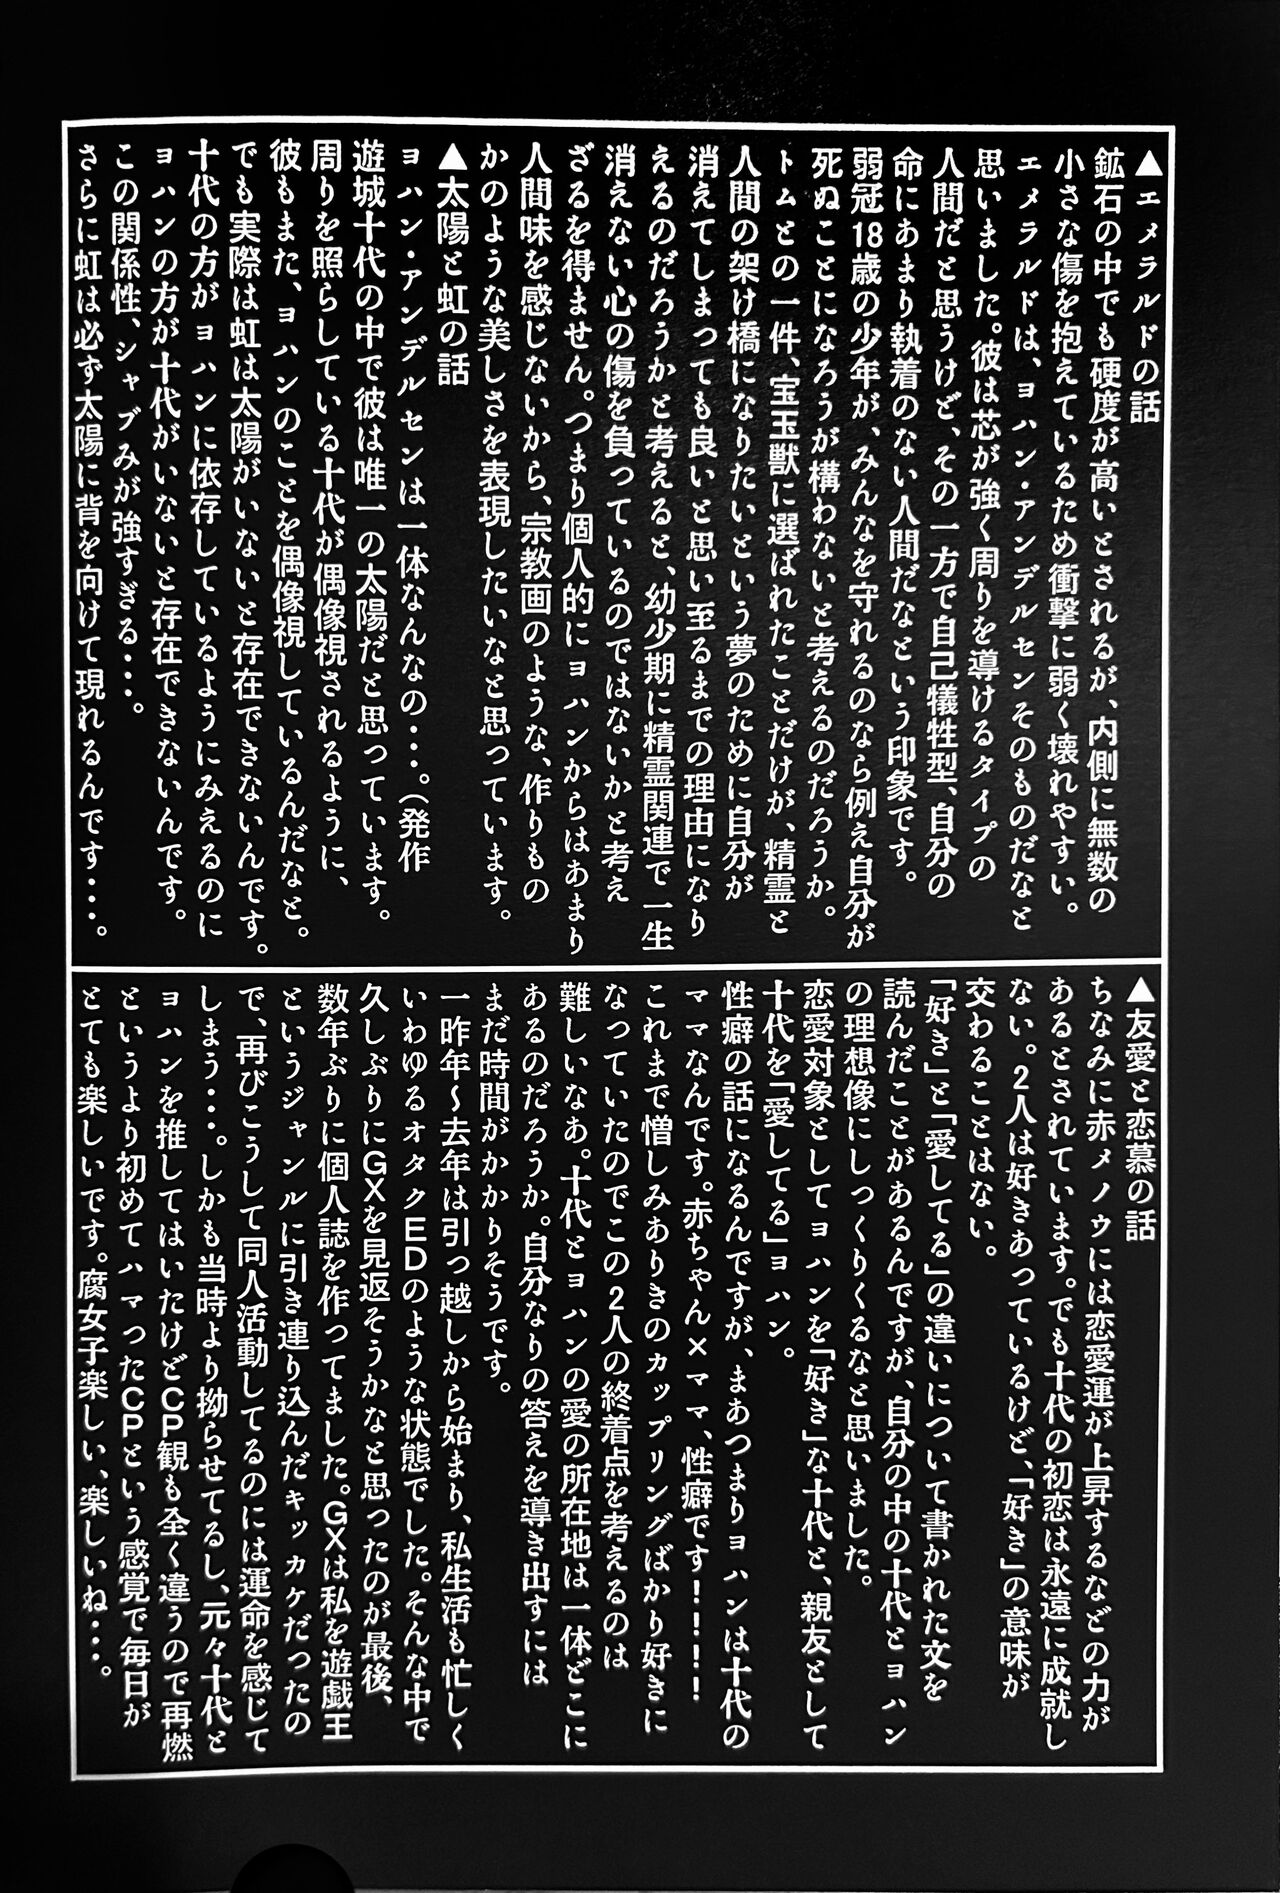 ▲エメラルドの話
鉱石の中でも硬度が高いとされるが、内側に無数の
小さな傷を抱えているため衝撃に弱く壊れやすい。
エメラルドは、ヨハン・アンデルセンそのものだなと
思いました。彼は芯が強く周りを導けるタイプの
人間だと思うけど、その一方で自己犠牲型、自分の
命にあまり執着のない人間だなという印象です。
弱冠18歳の少年が、みんなを守れるのなら例え自分が
死ぬことになろうが構わないと考えるのだろうか。
トムとの一件、宝玉獣に選ばれたことだけが、精霊と
人間の架け橋になりたいという夢のために自分が
消えてしまっても良いと思い至るまでの理由になり
えるのだろうかと考えると、幼少期に精霊関連で一生
消えない心の傷を負っているのではないかと考え
ざるを得ません。つまり個人的にヨハンからはあまり
人間味を感じないから、宗教画のような、作りもの
かのような美しさを表現したいなと思っています。
▲太陽と虹の話
ヨハン・アンデルセンは一体なんなの・・・。(発作
遊城十代の中で彼は唯一の太陽だと思っています。
周りを照らしている十代が偶像視されるように、
彼もまた、ヨハンのことを偶像視しているんだなと。
でも実際は虹は太陽がいないと存在できないんです。
十代の方がヨハンに依存しているようにみえるのに
ヨハンの方が十代がいないと存在できないんです。
この関係性、シャブみが強すぎる・・・。
さらに虹は必ず太陽に背を向けて現れるんです・・・。
▲友愛と恋慕の話
ちなみに赤メノウには恋愛運が上昇するなどの力が
あるとされています。でも十代の初恋は永遠に成就し
ない。2人は好きあっているけど、「好き」の意味が
交わることはない。
「好き」と「愛してる」の違いについて書かれた文を
読んだことがあるんですが、自分の中の十代とヨハン
の理想像にしっくりくるなと思いました。
恋愛対象としてヨハンを「好き」な十代と、親友として
十代を「愛してる」ヨハン。
性癖の話になるんですが、まあつまりヨハンは十代の
ママなんです。赤ちゃん×ママ、性癖です!!!!!
これまで憎しみありきのカップリングばかり好きに
なっていたのでこの2人の終着点を考えるのは
難しいなあ。十代とヨハンの愛の所在地は一体どこに
あるのだろうか。自分なりの答えを導き出すには
まだ時間がかかりそうです。
一昨年〜去年は引っ越しから始まり、私生活も忙しく
いわゆるオタクEDのような状態でした。そんな中で
久しぶりにGXを見返そうかなと思ったのが最後、
数年ぶりに個人誌を作ってました。GXは私を遊戯王
というジャンルに引き連り込んだキッカケだったの
で、再びこうして同人活動してるのには運命を感じて
しまう・・・。しかも当時より拗らせてるし、元々十代と
ヨハンを推してはいたけどCP観も全く違うので再燃
というより初めてハマったCPという感覚で毎日が
とても楽しいです。腐女子楽しい、楽しいね・・・。